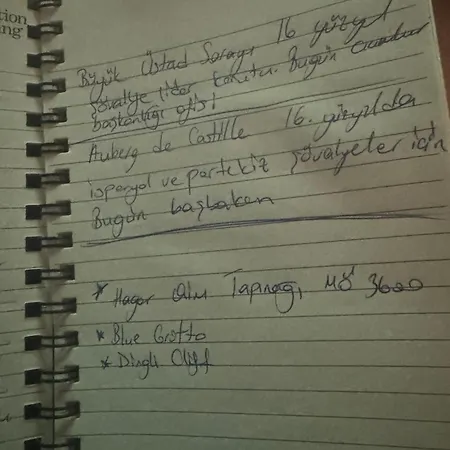 tion
ng
Büyük Üstad Sarayı 16 yüzyıl
şövalye lider konutu. Bugün
başkanlığı ofisi
Auberg de Castille 16. yüzyılda
ispanyol ve portekiz şövalyeler için
Bugün başbakan
* Hagar Qim Tapınağı, MÖ 3600
* Blue Grotto
* Dingli Cliff